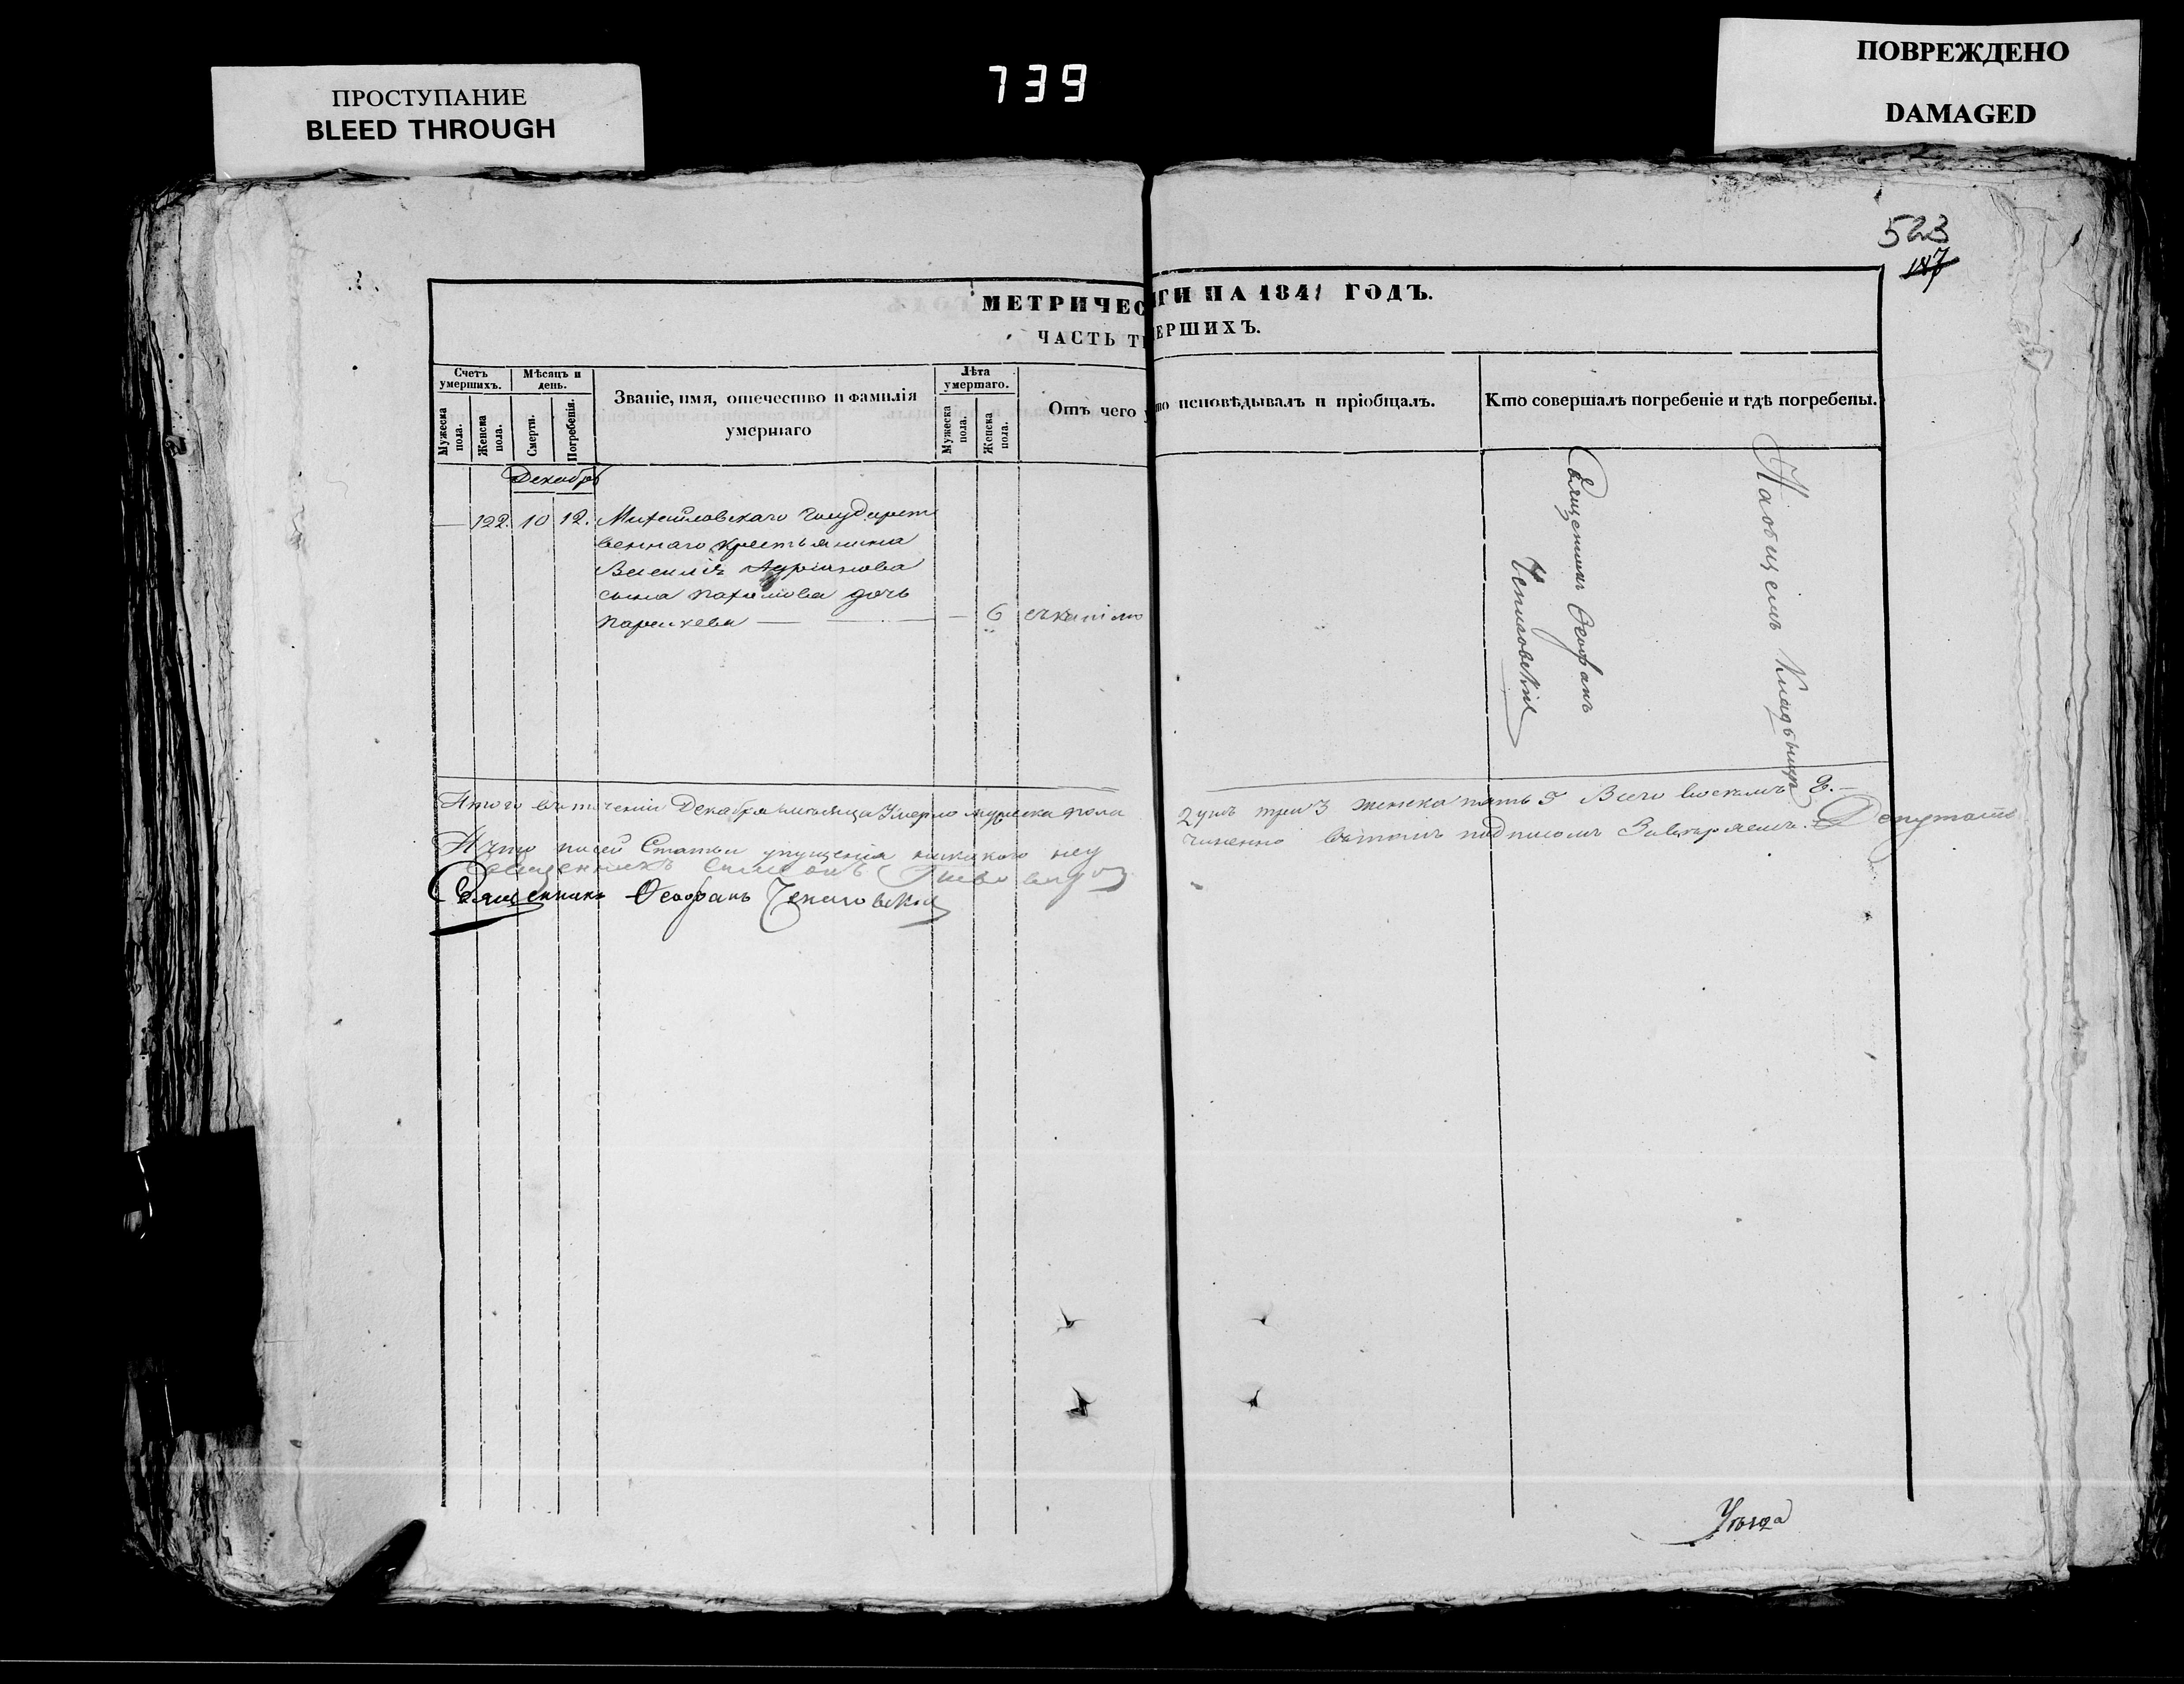 ПРОСТУПАНИЕ
BLEED THROUGH
739
ПОВРЕЖДЕНО
DAMAGED
523
187
МЕТРИЧЕС ГИ НА 1841 ГОДЪ.
ЧАСТЬ Т ЕРШИХЪ.
Счетъ умершихъ.
Мужеска пола.
Женска пола.
Мѣсяцъ и день.
Смерти.
Погребенія.
Званіе, имя, отечество и фамилія
умершаго
Лѣта умершаго.
Мужеска пола.
Женска пола.
Отъ чего
то исповѣдывалъ и пріобщалъ.
Кто совершалъ погребеніе и гдѣ погребены.
Декабрь
— 122. 10 12. Михайловскаго государст
веннаго крестьянина
Василія Андріянова
сына дочь
— 6
Священникъ Ѳеофанъ
Чепиговскій
На общемъ Кладбищѣ
Итого въ теченіи Декабря мѣсяца Умерло мужеска пола
три 3 женска пять 5 Всего восемь 8.—
А что въ сей Статьи упущенія никакого неу
чиненно въ томъ подписомъ Завѣряемъ. Депутатъ
Священникъ Симеонъ
Священникъ Ѳеофанъ Чепиговскій
Уѣзда